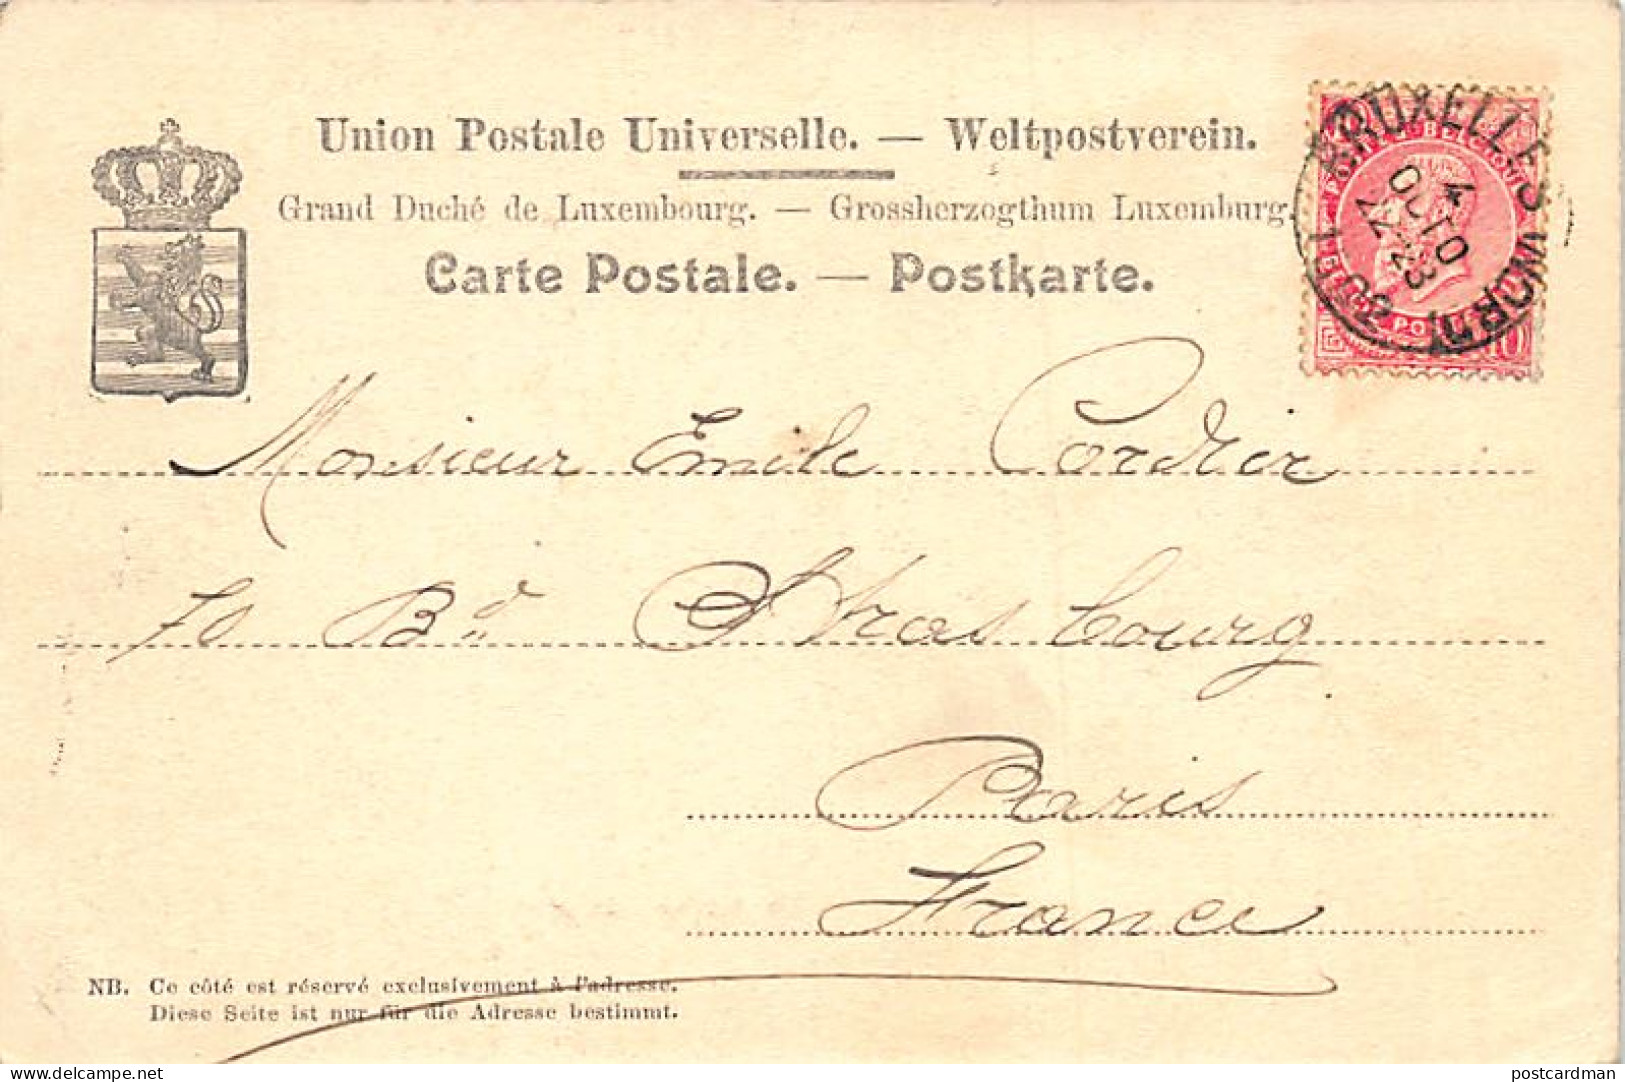 Union Postale Universelle. — Weltpostverein.
Grand Duché de Luxembourg. — Grossherzogthum Luxemburg.
Carte Postale. — Postkarte.
BRUXELLES
4
OCTO
22-23
10
Monsieur Emile Cordier
70 Bd Strasbourg
Paris
France
NB. Ce côté est réservé exclusivement à l'adresse.
Diese Seite ist nur für die Adresse bestimmt.
www.delcampe.net
postcardman